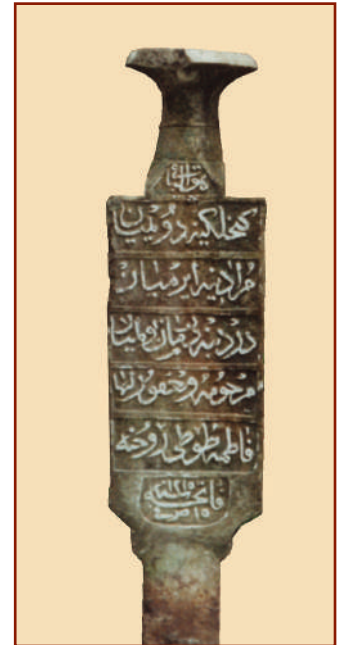 هو الباقي
كنجلكينه دويميان
مرادينه ايرميان
دردينه درمان اولميان
مرحومه و مغفور لها
فاطمه طوطى روحنه
فاتحه سنه ١٢١٥